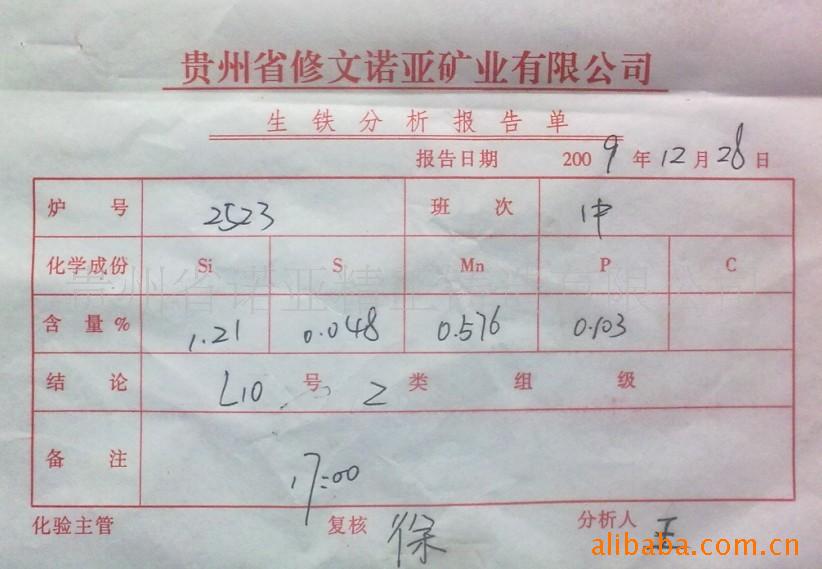 贵州省修文诺亚矿业有限公司
生铁分析报告单
报告日期 2009年12月28日
炉号 2523 班次 中
化学成份 Si S Mn P C
含量% 1.21 0.048 0.576 0.103
结论 L10号 2类 组 级
备注 17:00
化验主管 复核 徐 分析人
alibaba.com.cn